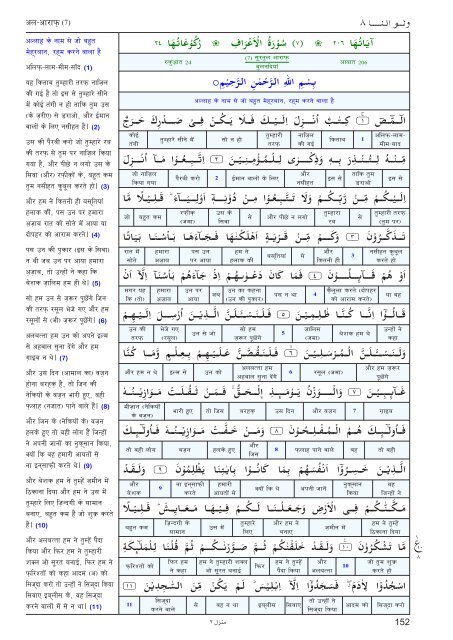 अल-आराफ़ (7)
ولو اننا ٨
अल्लाह के नाम से जो बहुत
मेहरबान, रहम करने वाला है
अलिफ़-लाम-मीम-साद (1)
यह किताब तुम्हारी तरफ़ नाज़िल
की गई है सो इस से तुम्हारे सीने
में कोई तंगी न हो ताकि तुम उस
(के ज़रीए) से डराओ, और ईमान
वालों के लिए नसीहत है। (2)
उस की पैरवी करो जो तुम्हारे रब
की तरफ़ से तुम पर नाज़िल किया
गया है, और पीछे न लगो उस के
सिवा (और) रफ़ीक़ों के, बहुत कम
तुम नसीहत कुबूल करते हो। (3)
और हम ने कितनी ही बसतियां
हलाक कीं, पस उन पर हमारा
अज़ाब रात को सोते में आया या
दोपहर को आराम करते। (4)
पस उन की पुकार (इस के सिवा)
न थी जब उन पर आया हमारा
अज़ाब, तो उन्हों ने कहा कि
बेशक ज़ालिम हम ही थे। (5)
सो हम उन से ज़रूर पूछेंगे जिन
की तरफ़ रसूल भेजे गए और हम
रसूलों से (भी) ज़रूर पूछेंगे। (6)
अलबत्ता हम उन को अपने इल्म
से अहवाल सुना देंगे और हम
ग़ाइब न थे। (7)
और उस दिन (आमाल का) वज़न
होना बरहक़ है, तो जिन की
नेकियों के वज़न भारी हुए, वही
फ़लाह (नजात) पाने वाले हैं। (8)
और जिन के (नेकियों के) वज़न
हलके हुए तो वही लोग हैं जिन्हों
ने अपनी जानों का नुक़्सान किया,
क्यों कि वह हमारी आयतों से
ना इन्साफ़ी करते थे। (9)
और बेशक हम ने तुम्हें ज़मीन में
ठिकाना दिया और हम ने उस में
तुम्हारे लिए ज़िन्दगी के सामान
बनाए, बहुत कम हैं जो शुक्र करते
हैं। (10)
और अलबत्ता हम ने तुम्हें पैदा
किया और फिर हम ने तुम्हारी
शक्ल ओ सूरत बनाई, फिर हम ने
फ़रिश्तों को कहा आदम (अ) को
सिज्दा करो तो उन्हों ने सिज्दा किया
सिवाए इब्लीस के, वह सिज्दा
करने वालों में से न था। (11)
اٰيَاتُهَا ٢٠٦ ❀ (٧) سُوْرَةُ الْاَعْرَافِ ❀ رُكُوْعَاتُهَا ٢٤
रुकुआत 24
(7) सूरतुल आराफ़
बुलन्दियां
आयात 206
بِسْمِ اللهِ الرَّحْمٰنِ الرَّحِيْمِ
अल्लाह के नाम से जो बहुत मेहरबान, रहम करने वाला है
الٓمّٓصٓ ١ كِتٰبٌ اُنْزِلَ اِلَيْكَ فَلَا يَكُنْ فِيْ صَدْرِكَ حَرَجٌ
कोई तंगी तुम्हारे सीने में सो न हो तुम्हारी तरफ़ नाज़िल की गई किताब 1 अलिफ़-लाम-मीम-साद
مِّنْهُ لِتُنْذِرَ بِهٖ وَذِكْرٰى لِلْمُؤْمِنِيْنَ ٢ اِتَّبِعُوْا مَآ اُنْزِلَ
जो नाज़िल किया गया पैरवी करो 2 ईमान वालों के लिए और नसीहत इस से ताकि तुम डराओ इस से
اِلَيْكُمْ مِّنْ رَّبِّكُمْ وَلَا تَتَّبِعُوْا مِنْ دُوْنِهٖٓ اَوْلِيَآءَ ۭ قَلِيْلًا مَّا
जो बहुत कम रफ़ीक़ (जमा) उस के सिवा से और पीछे न लगो तुम्हारा रब से तुम्हारी तरफ़ (तुम पर)
تَذَكَّرُوْنَ ٣ وَكَمْ مِّنْ قَرْيَةٍ اَهْلَكْنٰهَا فَجَآءَهَا بَاْسُنَا بَيَاتًا
रात में सोते हमारा अज़ाब पस उन पर आया हम ने हलाक की बसतियां से और कितनी ही 3 नसीहत कुबूल करते हो
اَوْ هُمْ قَآئِلُوْنَ ٤ فَمَا كَانَ دَعْوٰىهُمْ اِذْ جَآءَهُمْ بَاْسُنَآ اِلَّآ اَنْ
मगर यह कि (तो) हमारा अज़ाब उन पर आया जब उन का कहना (उन की पुकार) पस न था 4 क़ैलूला करते (दोपहर को आराम करते) या वह
قَالُوْٓا اِنَّا كُنَّا ظٰلِمِيْنَ ٥ فَلَنَسْـَٔلَنَّ الَّذِيْنَ اُرْسِلَ اِلَيْهِمْ
उन की तरफ़ भेजे गए (रसूल) उन से जो सो हम ज़रूर पूछेंगे 5 ज़ालिम (जमा) बेशक हम थे उन्हों ने कहा
وَلَنَسْـَٔلَنَّ الْمُرْسَلِيْنَ ٦ فَلَنَقُصَّنَّ عَلَيْهِمْ بِعِلْمٍ وَّمَا كُنَّا
और हम न थे इल्म से उन को अलबत्ता हम अहवाल सुना देंगे 6 रसूल (जमा) और हम ज़रूर पूछेंगे
غَآئِبِيْنَ ٧ وَالْوَزْنُ يَوْمَئِذِ ِۨالْحَقُّ ۚ فَمَنْ ثَقُلَتْ مَوَازِيْنُهٗ
मीज़ान (नेकियों के वज़न) भारी हुए तो जिस बरहक़ उस दिन और वज़न 7 ग़ाइब
فَاُولٰٓئِكَ هُمُ الْمُفْلِحُوْنَ ٨ وَمَنْ خَفَّتْ مَوَازِيْنُهٗ فَاُولٰٓئِكَ
तो वही लोग वज़न हलके हुए और जिस 8 फ़लाह पाने वाले वह तो वही
الَّذِيْنَ خَسِرُوْٓا اَنْفُسَهُمْ بِمَا كَانُوْا بِاٰيٰتِنَا يَظْلِمُوْنَ ٩ وَلَقَدْ
और बेशक 9 ना इन्साफ़ी करते हमारी आयतों से क्यों कि थे अपनी जानें नुक़्सान किया वह जिन्हों ने
مَكَّنّٰكُمْ فِي الْاَرْضِ وَجَعَلْنَا لَكُمْ فِيْهَا مَعَايِشَ ۭ قَلِيْلًا
बहुत कम ज़िन्दगी के सामान उस में तुम्हारे लिए और हम ने बनाए ज़मीन में हम ने तुम्हें ठिकाना दिया
مَّا تَشْكُرُوْنَ ١٠ وَلَقَدْ خَلَقْنٰكُمْ ثُمَّ صَوَّرْنٰكُمْ ثُمَّ قُلْنَا لِلْمَلٰٓئِكَةِ
फ़रिश्तों को फिर हम ने कहा हम ने तुम्हारी शक्ल ओ सूरत बनाई फिर हम ने तुम्हें पैदा किया और अलबत्ता 10 जो तुम शुक्र करते हो
اسْجُدُوْا لِاٰدَمَ ۖ فَسَجَدُوْٓا اِلَّآ اِبْلِيْسَ ۭ لَمْ يَكُنْ مِّنَ السّٰجِدِيْنَ ١١
11 सिज्दा करने वाले से वह न था इब्लीस सिवाए तो उन्हों ने सिज्दा किया आदम को सिज्दा करो
منزل ٢
152